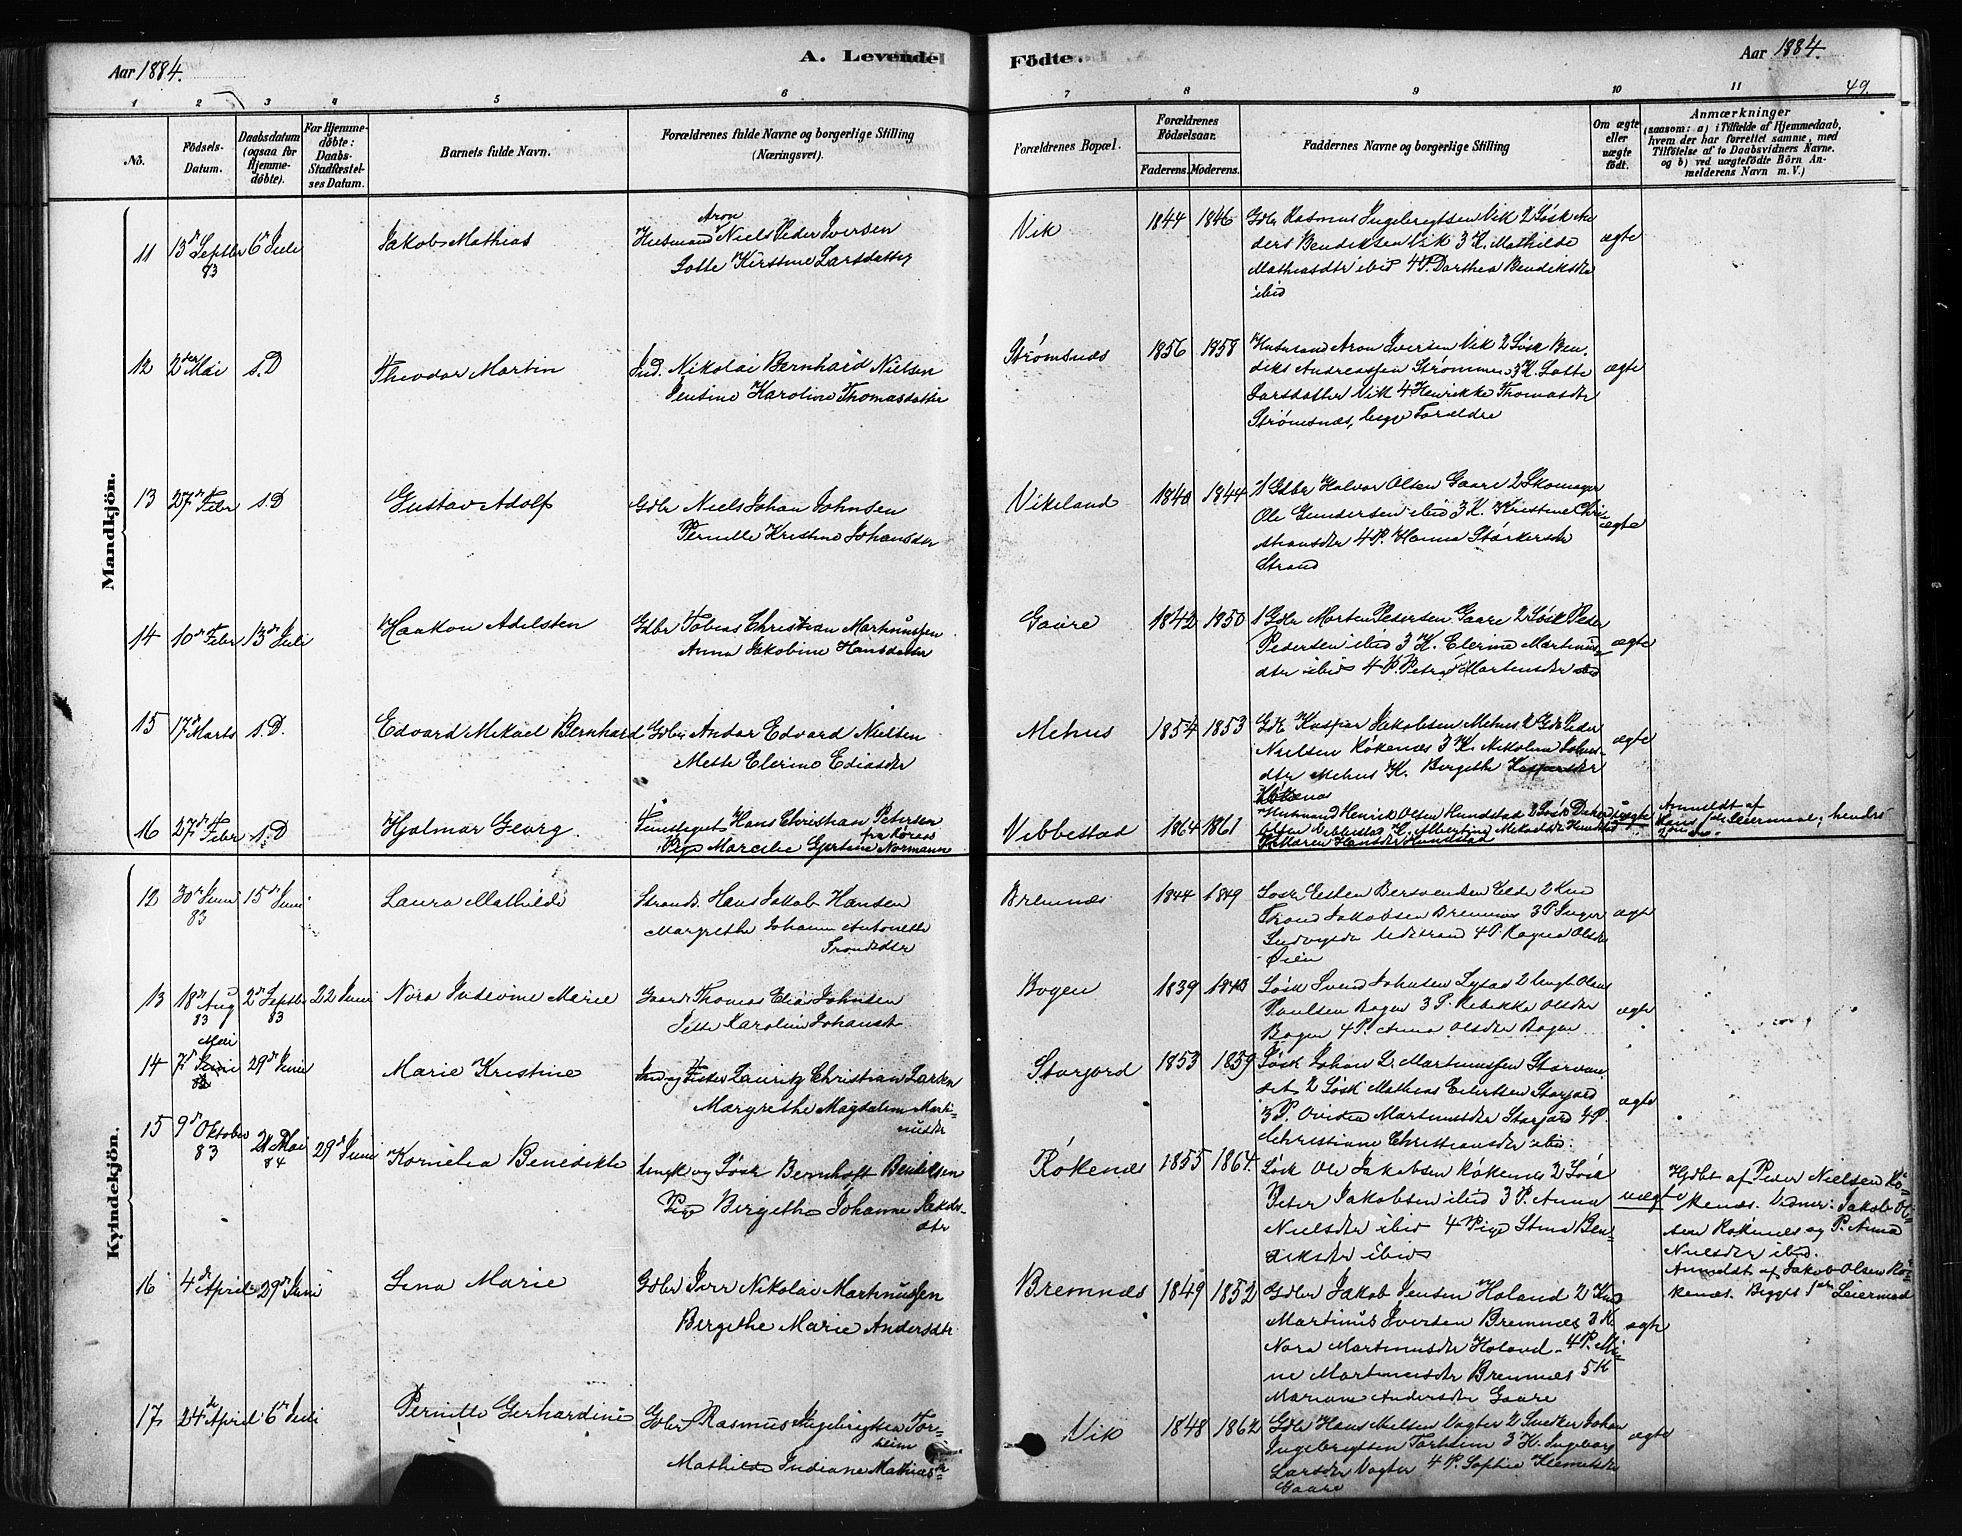 Aar 1884.
A. Levende Födte.
Aar 1884.
49.
1 2 3 4 5 6 7 8 9 10 11
No.
Födsels-
Datum.
Daabsdatum
(ogsaa for
Hjemme-
döbte).
For Hjemme-
döbte:
Daabs-
Stadfæstel-
ses Datum.
Barnets fulde Navn.
Forældrenes fulde Navne og borgerlige Stilling
(Næringsvei).
Forældrenes Bopæl.
Forældrenes
Födselsaar.
Faderens. Moderens.
Faddernes Navne og borgerlige Stilling
Om ægte
eller
uægte
födt.
Anmærkninger
(saasom: a) i Tilfælde af Hjemmedaab,
hvem der har forrettet samme, med
Tilföielse af to Daabsvidners Navne.
og b) ved uægtefödte Börn An-
melderens Navn m. V.)
Mandkjön.
11 13d Septbr 83 6d Juli
Jakob Mathias
Aron
Husmand Niels Peder Iversen
Lotte Kirstine Larsdatter
Vik 1844 1846
Gdbr Rasmus Ingebrigtsen Vik 2 Løsk An
ders Bendiksen Vik 3 K. Mathilde
Mathiasdtr ibid 4 P. Dorthea Bendiksdtr
ibid
ægte
12 2den Mai s.D
Theodor Martin
Ind. Nikolai Bernhard Nielsen
Jentine Karoline Thomasdatter
Strømsnæs 1856 1858
Husmand Aron Iversen Vik 2 Løsk Ben
diks Andreassen Strømsnes 3 K. Lotte
Larsdatter Vik 4 Henrikke Thomasdtr
Strømsnæs, begge Forældre
ægte
13 27d Febr s.D
Gustav Adolf
Gdbr Niels Johan Johnsen
Pernille Kristine Johansdtr
Vikeland 1840 1844
1 Gdbr Halvor Olsen Gaare 2 Skomager
Ole Gundersen ibid 3 K. Kristine Chri-
stiansdtr 4 P. Hanna Størkersdtr
Strand
ægte
14 10d Febr 13d Juli
Haakon Adelsten
Gdbr Tobias Christian Martinussen
Anna Jakobine Hansdatter
Gaare 1842 1850
1 Gdbr Morten Pedersen Gaare 2 Løsk Peder
Pedersen ibid 3 K. Elerine Martinus-
dtr ibid 4 P. Petra Martensdtr ibid
ægte
15 17d Marts s.D.
Edvard Mikael Bernhard
Gdbr Andor Edvard Nielsen
Mette Elerine Eliasdtr
Mehus 1854 1853
Gdb Kaspar Jakobsen Mehus 2 Gdb Peder
Nielsen Røkenæs 3 K. Nikoline Johns-
dtr Mehus K. Bergithe Kaspersdtr
Røkenæs
ægte
16 27d Febr s.D
Hjalmar Georg.
Tjenestegut Hans Christian Petersen
fra Koraas
Pige Marcelie Gjertine Normann
Vebbestad 1864 1861
Husmand Henrik Olsen Hundstad
Olsen Vebbestad K. Albertine Mikalsdtr Hundstad
P. Maren Hansdtr Hundstad
uægte
Anmeldt af
Leiermaal, hendes
Kvindekjön.
12 30d Juni 83 15d Juni
Laura Mathilde
Strands. Hans Jakob Hansen
Margrethe Johanna Antonette
Trondsdtr
Bremnæs 1844 1849
Løsk Esten Bersvensen Elde 2 Kud
Trond Jakobsen Bremnæs 3 P. Inger
Ludvigsdtr 4 P. Ragna Olsdtr
Øien
ægte
13 18d Aug 83 2d Septbr 83 22 Juni
Nora Indevine Marie
Gaardb Thomas Elias Johnsen
Jette Karoline Johansd.
Bogen 1839 1843
Løsk Svend Johnsen 2 Ungk Olens
Poulsen Bogen 3 P. Rebekka Olsdtr
Bogen 4 P. Anna Olsdtr Bogen
ægte
14 7d Mai 29d Juni
Marie Kristine
Ind og Fisker Lauritz Christian Larsen
Margrethe Magdalene Marti-
nusdtr
Storjord 1853 1859
Løsk Johan L. Martinussen Storvan
det 2 Løsk Mathias Eilertsen Storjord
3 P. Ovidia Martinusdtr Storjord 4 P.
Christiane Christiansdtr ibid.
ægte
15 9d Oktober 83 21 Mai 84 29d Juni
Kornelia Benedikte
Ungk og Løsk Bernhoft Bendiksen
Pige Birgithe Johanne Jakobs-
dtr
Røkenæs 1855 1864
Løsk Ole Jakobsen Røkenæs 2 Løsk
Peter Jakobsen ibid 3 P. Anna
Nielsdtr ibid 4 Pige Stina Ben-
diksdtr ibid
uægte
Hjdbt af Peder Nielsen Rø-
kenæs. Vidner: Jakob Ol-
sen Røkenæs og P. Anna
Nielsdtr ibid.
Anmeldt af Jakob Olsen Rø-
kenæs. Begges 1ste Leiermaal
16 4d April 29d Juni
Lina Marie
Gdbr Iver Nikolai Martinussen
Bergithe Marie Andersdtr
Bremnæs 1849 1852
Gdbr Jakob Jensen Holand 2 Kud
Martinus Iversen Bremnæs 3 K.
Nora Martinusdtr Holand. 4 P. Mi-
ne Martinusdtr Bremnæs 5 K
Mariane Andersdtr Gaare
ægte
17 24d April 6d Juli
Pernille Gerhardine
Gdbr Rasmus Ingebrigtsen Tor-
heim
Mathilde Indiane Mathiasdtr
Vik 1848 1862
Gdbr Hans Nielsen Vagter 2 Snedker Johan
Ingebrigtsen Torheim 3 K. Ingeborg
Larsdtr Vagter 4 P. Sophie Klemetsdtr
Gaare
ægte